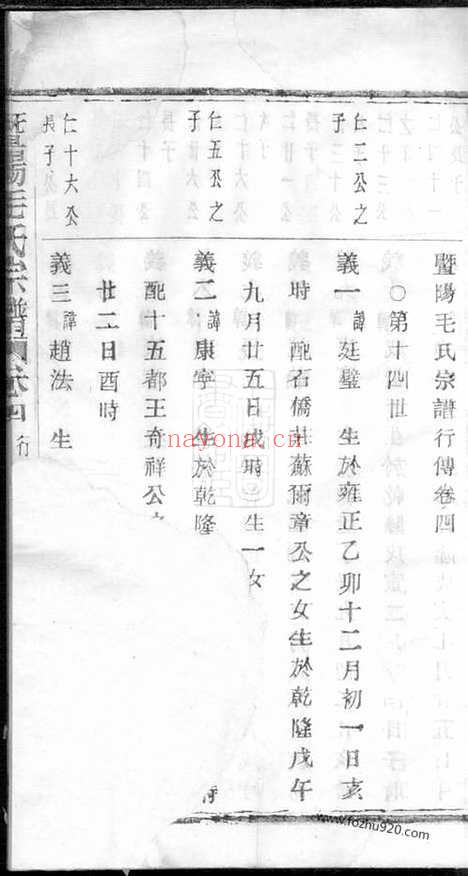 暨陽毛氏宗譜行傳卷四
○第十四世
仁二公之
子
義一諱廷璧 生於雍正乙卯十二月初一日亥
時 配石僑莊蘇爾章公之女生於乾隆戊午
九月廿五日戌時 生一女
仁五公之
子
義二諱康寧 生於乾隆
配十五都王奇祥公
廿二日酉時
仁十六公
長子
義三諱趙法 生
暨陽毛氏宗譜
nayona.cn
www.fozhu920.com